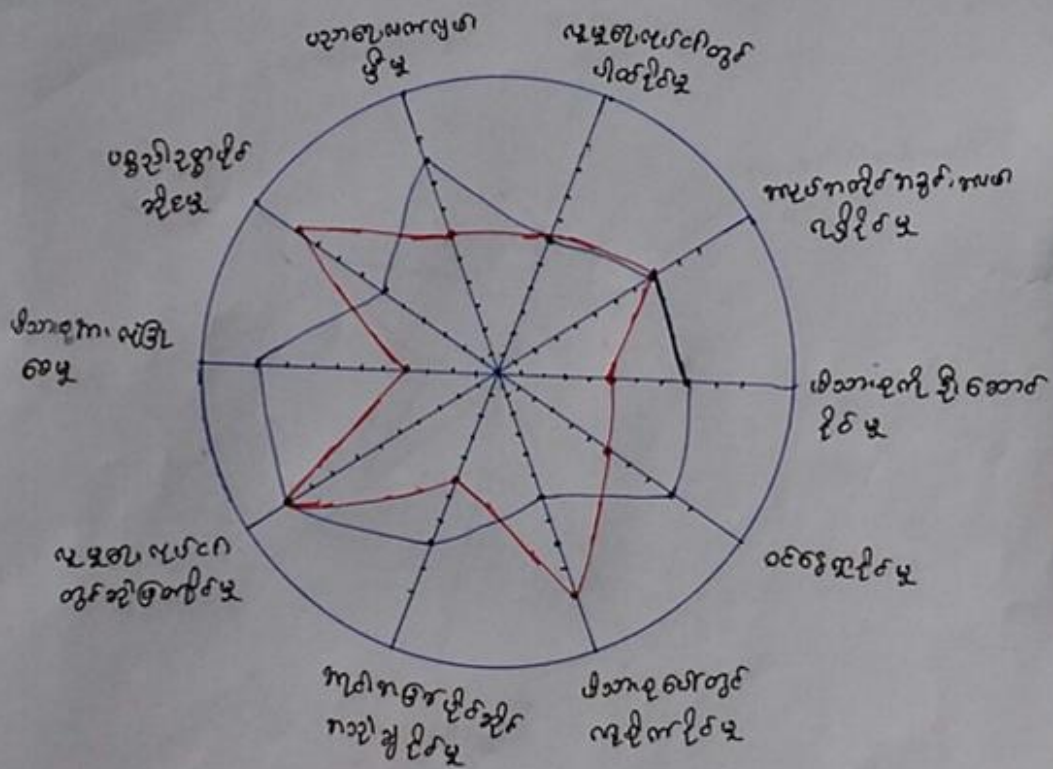 ပညာရေး လက်လှမ်း
မှီမှု
လူမှုရေးလုပ်ငန်းတွင်
ပါဝင်နိုင်မှု
အလုပ်အကိုင်အခွင့်အလမ်း
ရရှိနိုင်မှု
မိသားစုကို ဦးဆောင်
နိုင်မှု
ဝင်ငွေရှာနိုင်မှု
မိသားစုပေါ်တွင်
လွှမ်းမိုးနိုင်မှု
ပိုင်ဆိုင်
နိုင်မှု
လူမှုရေးလုပ်ငန်း
တွင်ဆုံးဖြတ်နိုင်မှု
မိသားစုအား လုံခြုံ
စေမှု
ပစ္စည်းဥစ္စာပိုင်
ဆိုင်မှု